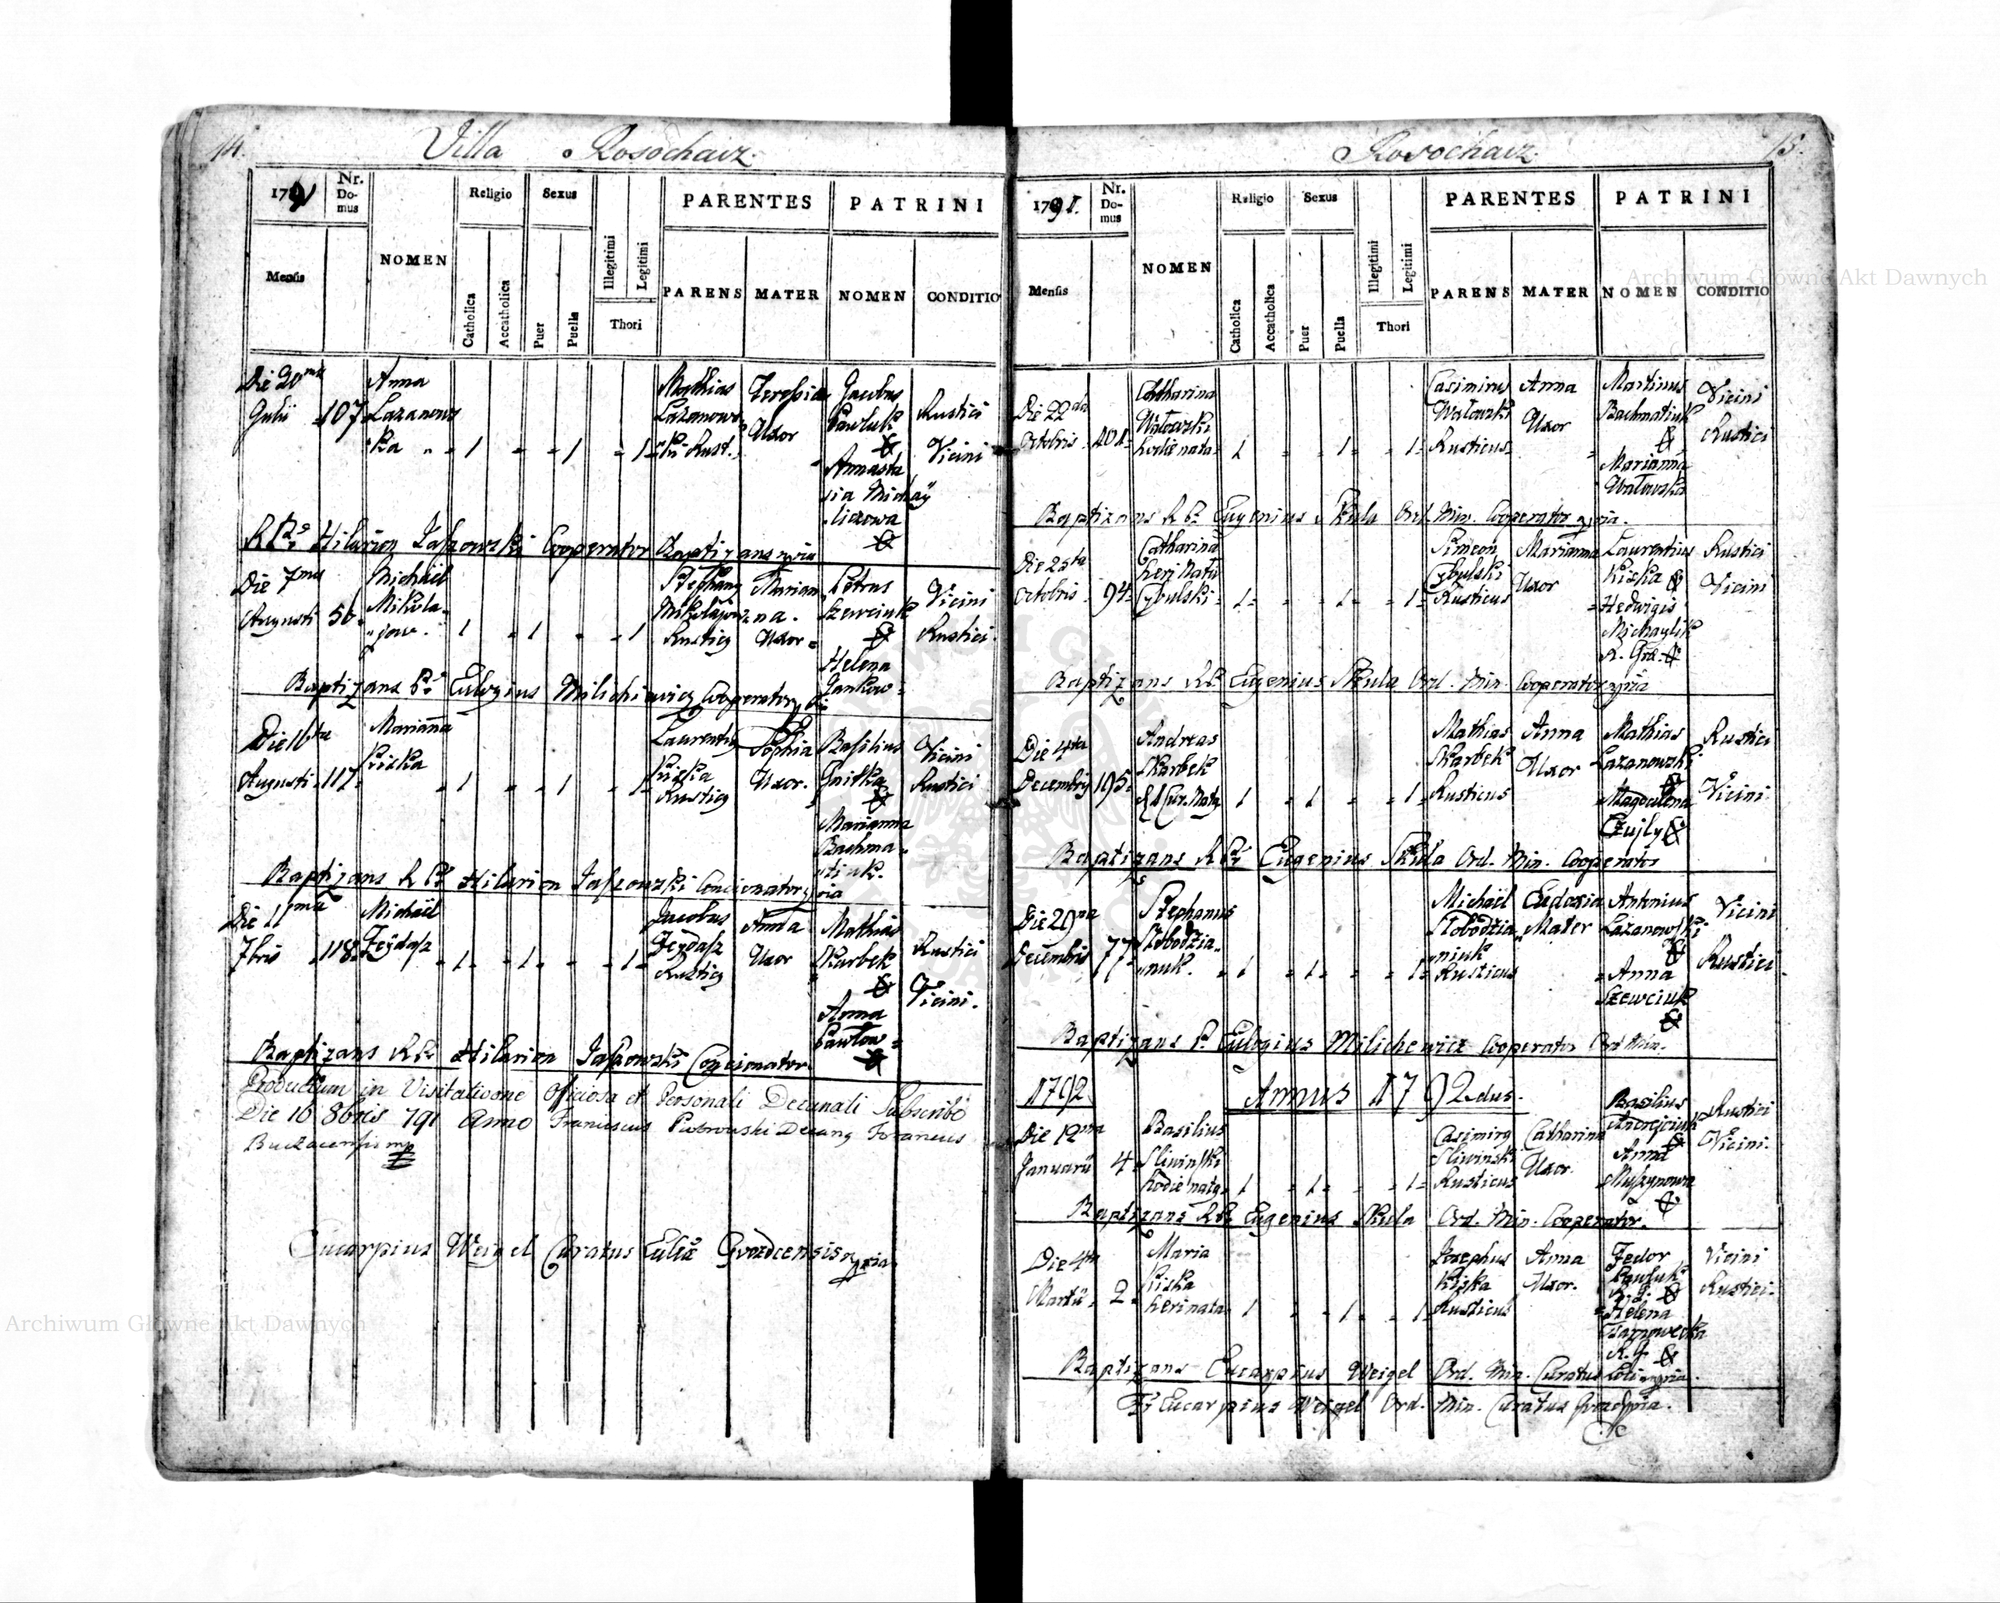 14.
Villa Rosochacz.
1791
Nr. Domus
Mensis
NOMEN
Religio
Catholica
Accatholica
Sexus
Puer
Puella
Illegitimi
Legitimi
Thori
PARENTES
PARENS
MATER
PATRINI
NOMEN
CONDITIO
Die 20
Julii
107
Anna
Lazanows
ka
1 1 1
Mathias
Lazanows
ki Rust.
Teressia
Uxor
Jacobus
Pawluk
&
Annasta
sia Michay
liczowa
Rustici
Vicini
Hilarion Jaszowski Cooperator Baptizans
Die 7ma
Augusti
56
Michael
Mikola
jow.
1 1 1
Stephang
Rusticg
Marian
na
Uxor
Petrus
Szewciuk
&
Helena
Jankow
Vicini
Rustici
Baptizans Eulogius Milichiewicz Cooperator
Die 16ta
Augusti
117.
Marianna
Kiszka
1 1 1
Laurentig
Kiszka
Rusticg
Sophia
Uxor.
Basilius
Gnitka
&
Marianna
Bachma
tiuk.
Vicini
Rustici
Baptizans R Hilarion Jaszowski Concionator
Die 11ma
7bris
118
Michael
Feydasz
1 1 1
Jacobus
Feydasz
Rusticg
Anna
Uxor
Mathias
Skarbek
&
Anna
Pawlow
Rustici
Vicini.
Baptizans Hilarion Jaszowski Concionator
Productum in Visitatione Officiosa et Personali Decanali Subscribo
Die 16 8bris 791 Anno Franciscus Piotrowski Decang Foraneus
Buczacensis mp
Eucarpius Weigel Curatus Gvozdcensis
15.
Rosochacz.
1791.
Nr. Domus
Mensis
NOMEN
Religio
Catholica
Accatholica
Sexus
Puer
Puella
Illegitimi
Legitimi
Thori
PARENTES
PARENS
MATER
PATRINI
NOMEN
CONDITIO
Archiwum Główne Akt Dawnych
Die 22da
Octobris
101
Catharina
Watowski
hodie nata
1 1 1
Casimirus
Watowski
Rusticus
Anna
Uxor
Martinus
Bachmatiuk
&
Marianna
Watowska
Vicini
Rustici
Baptizans R Eugenius Skula Ord. Min. Cooperator
Die 25ta
Octobris
94
Catharina
heri Nata
Cybulski
1 1 1
Simeon
Cybulski
Rusticus
Marianna
Uxor
Laurentius
Kiszka &
Hedwigis
Michaylik
Rustici
Vicini
Baptizans Eugenius Skula Ord. Min. Cooperator
Die 4ta
Decembris
105
Andreas
Skarbek
1 1 1
Mathias
Skarbek
Rusticus
Anna
Uxor
Mathias
Lazanowski
&
Magdalena
Czujly
Rustici
Vicini
Baptizans Eugenius Skula Ord. Min. Cooperator
Die 29na
Decembris
77
Stephanus
Slobodzia
niuk.
1 1 1
Michael
Slobodzia
niuk
Rusticus
Eudoxia
Mater
Antonius
Lazanowski
&
Anna
Szewciuk
&
Vicini
Rustici
Baptizans P. Eulogius Milichewicz Cooperator Ord Min.
1792
Annus 1792dus.
Die 12ma
Januarii
4
Basilius
Sliwinski
hodie natg
1 1 1
Casimirg
Sliwinski
Rusticus
Catharina
Uxor
Basilius
Andrejciuk
&
Anna
Muszynowa
&
Rustici
Vicini.
Baptizans Eugenius Skula Ord. Min. Cooperator.
Die 4ta
Martii
2
Maria
Kiszka
heri nata
1 1 1
Josephus
Kiszka
Rusticus
Anna
Uxor.
Fedor
Pawluk
&
Helena
Vicini
Rustici.
Baptizans Eucarpius Weigel Ord. Min. Curatus
Eucarpius Weigel Ord. Min. Curatus
Archiwum Główne Akt Dawnych